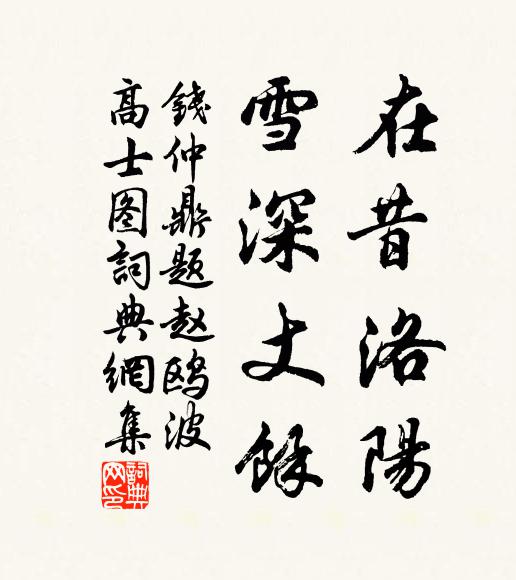 在昔洛陽
雪深丈餘
錢仲鼎题赵鸥波
高士图詞典網集
詞典网印